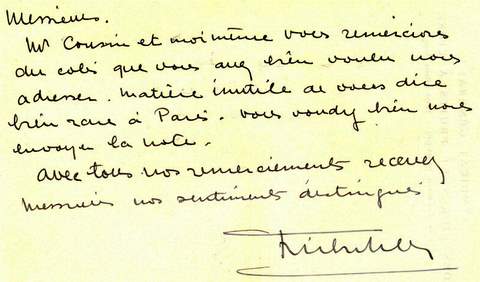 Messieurs.
Mr Cousin et moi même vous remercions
du colis que vous avez bien voulu nous
adresser. Matière inutile de vous dire
bien rare à Paris. Vous voudrez bien nous
envoyer la note.
Avec tous nos remerciements recevez
Messieurs nos sentiments distingués